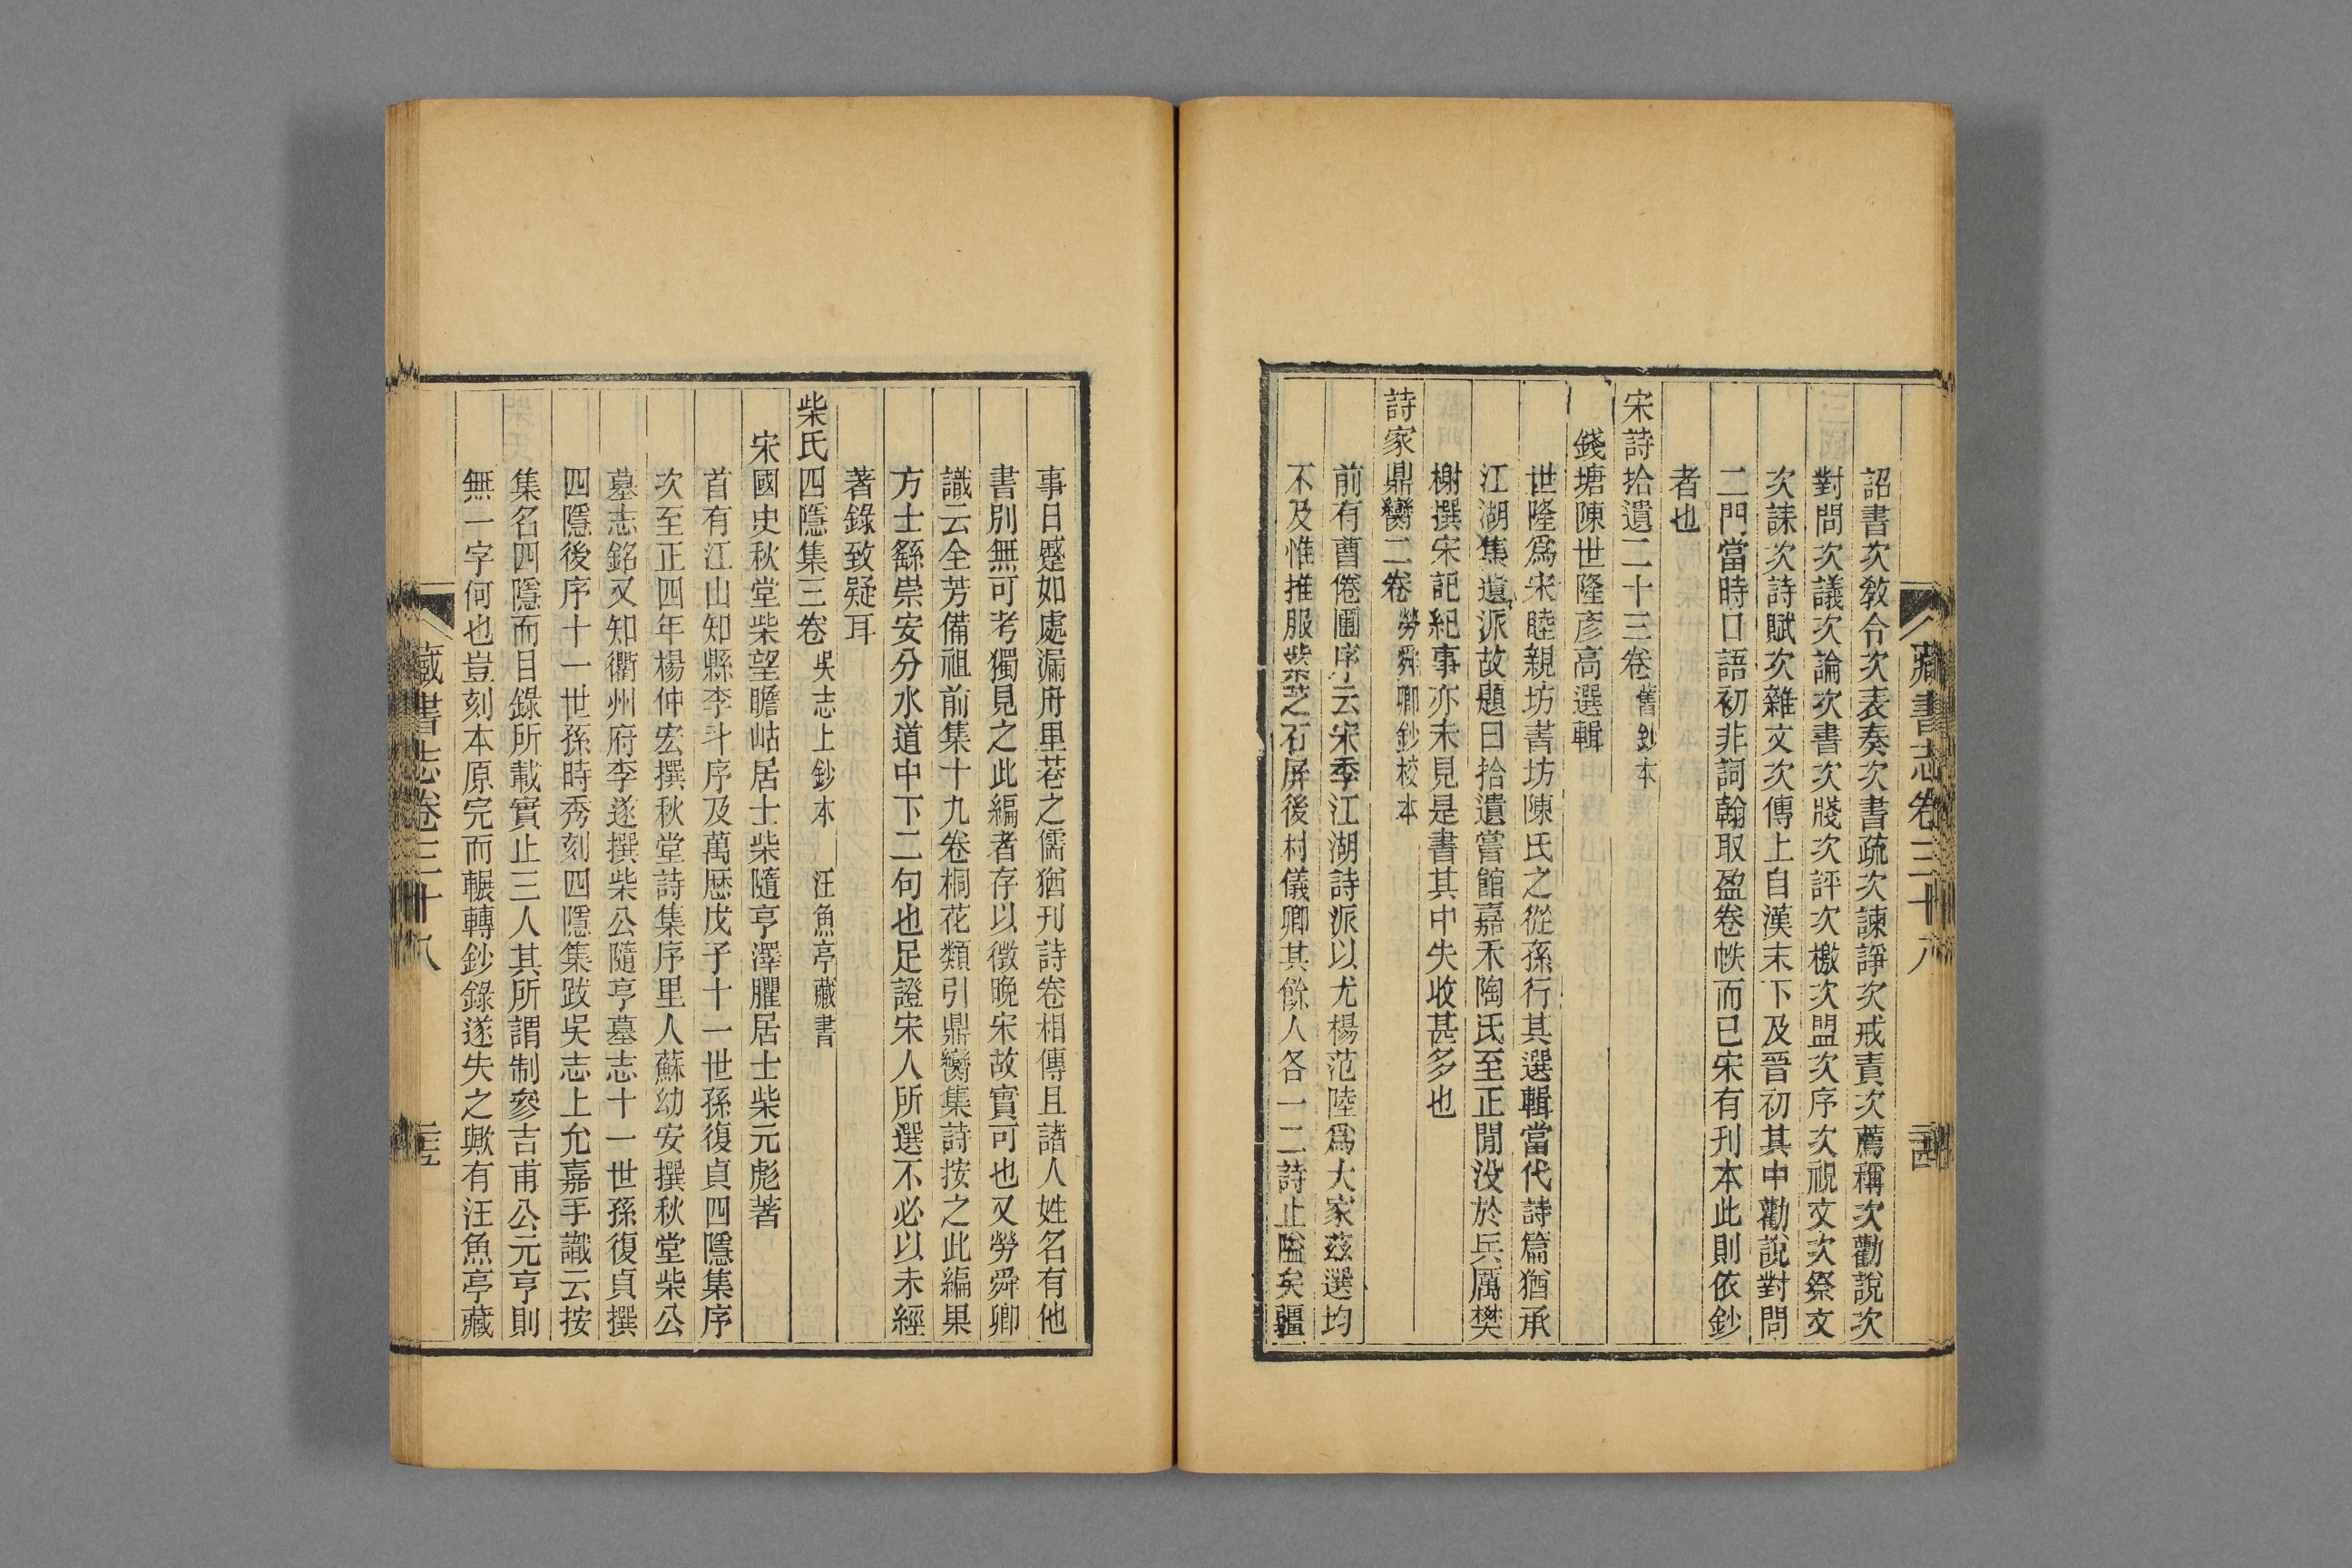 藏書志卷三十八
詔書次敎令次表奏次書疏次諫諍次戒責次薦稱次勸說次
對問次議次論次書次牋次評次檄次盟次序次視文次祭文
次誄次詩賦次雜文次傳上自漢末下及晉初其中勸說對問
二門當時口語初非詞翰取盈卷帙而已宋有刊本此則依鈔
者也
宋詩拾遺二十三卷 舊鈔本
錢塘陳世隆彥高選輯
世隆爲宋睦親坊書坊陳氏之從孫行其選輯當代詩篇猶承
江湖集遺派故題曰拾遺嘗館嘉禾陶氏至正閒没於兵厲樊
榭撰宋記紀事亦未見是書其中失收甚多也
詩家鼎臠二卷 勞舜卿鈔校本
前有曹倦圃序云宋季江湖詩派以尤楊范陸爲大家茲選均
不及惟推服紫芝石屏後村儀卿其餘人各一二詩止隘矣疆
事日蹙如處漏舟里巷之儒猶刊詩卷相傳且諸人姓名有他
書別無可考獨見之此編者存以徵晚宋故實可也又勞舜卿
識云全芳備祖前集十九卷桐花類引鼎臠集詩按之此編果
方士繇崇安分水道中下二句也足證宋人所選不必以未經
著錄致疑耳
柴氏四隱集三卷 吳志上鈔本 汪魚亭藏書
宋國史秋堂柴望瞻岵居士柴隨亨澤臞居士柴元彪著
首有江山知縣李斗序及萬歷戊子十一世孫復貞四隱集序
次至正四年楊仲宏撰秋堂詩集序里人蘇幼安撰秋堂柴公
墓志銘又知衢州府李遂撰柴公隨亨墓志十一世孫復貞撰
四隱後序十一世孫時秀刻四隱集跋吳志上允嘉手識云按
集名四隱而目錄所載實止三人其所謂制參吉甫公元亨則
無一字何也豈刻本原完而輾轉鈔錄遂失之歟有汪魚亭藏
藏書志卷三十八